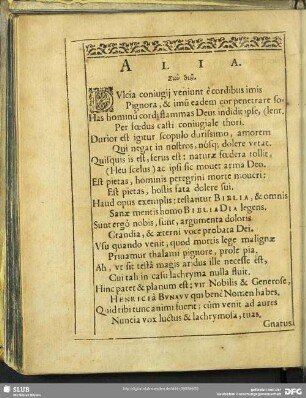 ALIA.
Σὺν Θεῷ.
DVlcia coniugij veniunt è cordibus imis
Pignora, & imis eadem cor penetrare so-
Has hominū cordi flammas Deus indidit ipse, (lent.
Per fœdus casti coniugiale thori.
Durior est igitur scopulo durissimo, amorem
Qui negat in nostros, nósq; dolere vetat.
Quisquis is est, ferus est: naturæ fœdera rollit,
(Heu scelus) ac ipsi sic mouet arma Deo.
Est pietas, hominis peregrini morte moueri:
Est pietas, hostis fata dolere sui.
Haud opus exemplis: testantur BIBLIA, & omnis
Sanæ mentis homo BIBLIA DIA legens.
Sunt ergò nobis, sunt, argumenta doloris
Grandia, & æterni voce probata Dei.
Vsu quando venit, quod mortis lege malignæ
Priuamur thalami pignore, prole pia.
Ah, vt sit testâ magis aridus ille necesse est,
Cui tali in casu lachryma nulla fluit.
Hinc patet & planum est; vir Nobilis & Generose,
HENRICE à BVNAV qui benè Nomen habes,
Quid tibi tunc animi fuerit; cùm venit ad aures
Nuncia vox luctus & lachrymosa, tuas,
Gnatus
SLUB